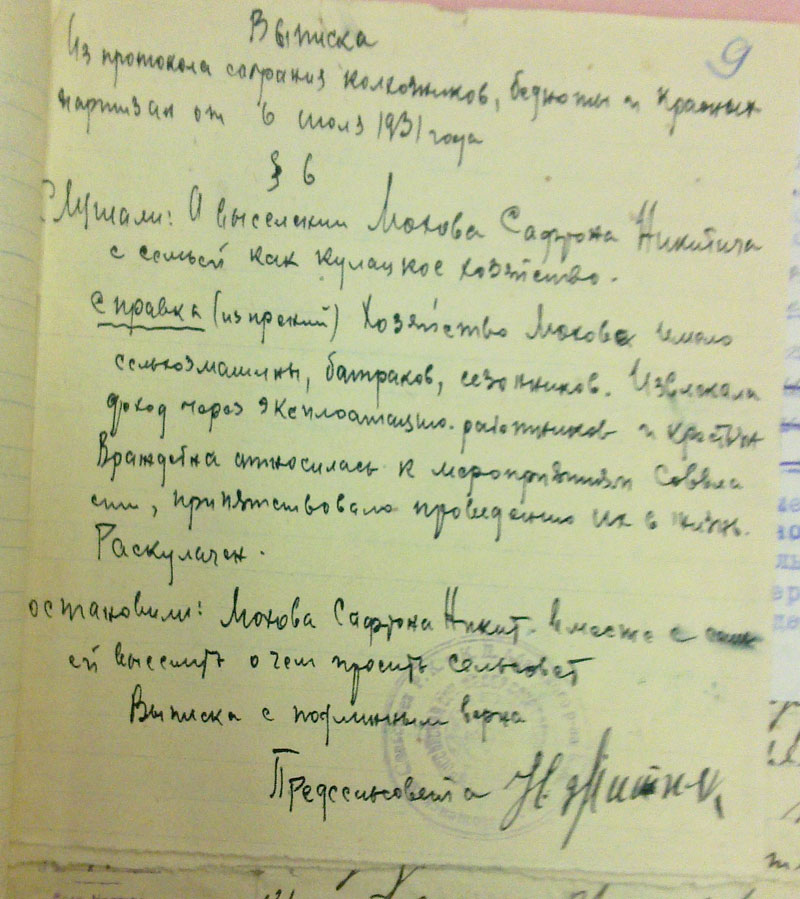 9
Выписка
Из протокола собрания колхозников, бедноты и красных
партизан от 6 июля 1931 года
§ 6
Слушали: О выселении Мохова Сафрона Никитича
с семьей как кулацкое хозяйство.
Справка (из прений) Хозяйство Мохова имало
сельхозмашины, батраков, сезонников. Извлекала
доход через эксплоатацию работников и крестьян
Враждебна относилась к мероприятиям Соввла
сти, припятствовало проведению их в жизнь.
Раскулачен.
остановили: Мохова Сафрона Никит. вместе с семь
ей выселить о чем просить сельсовет
Выписка с подлинным верна
Предсельсовета